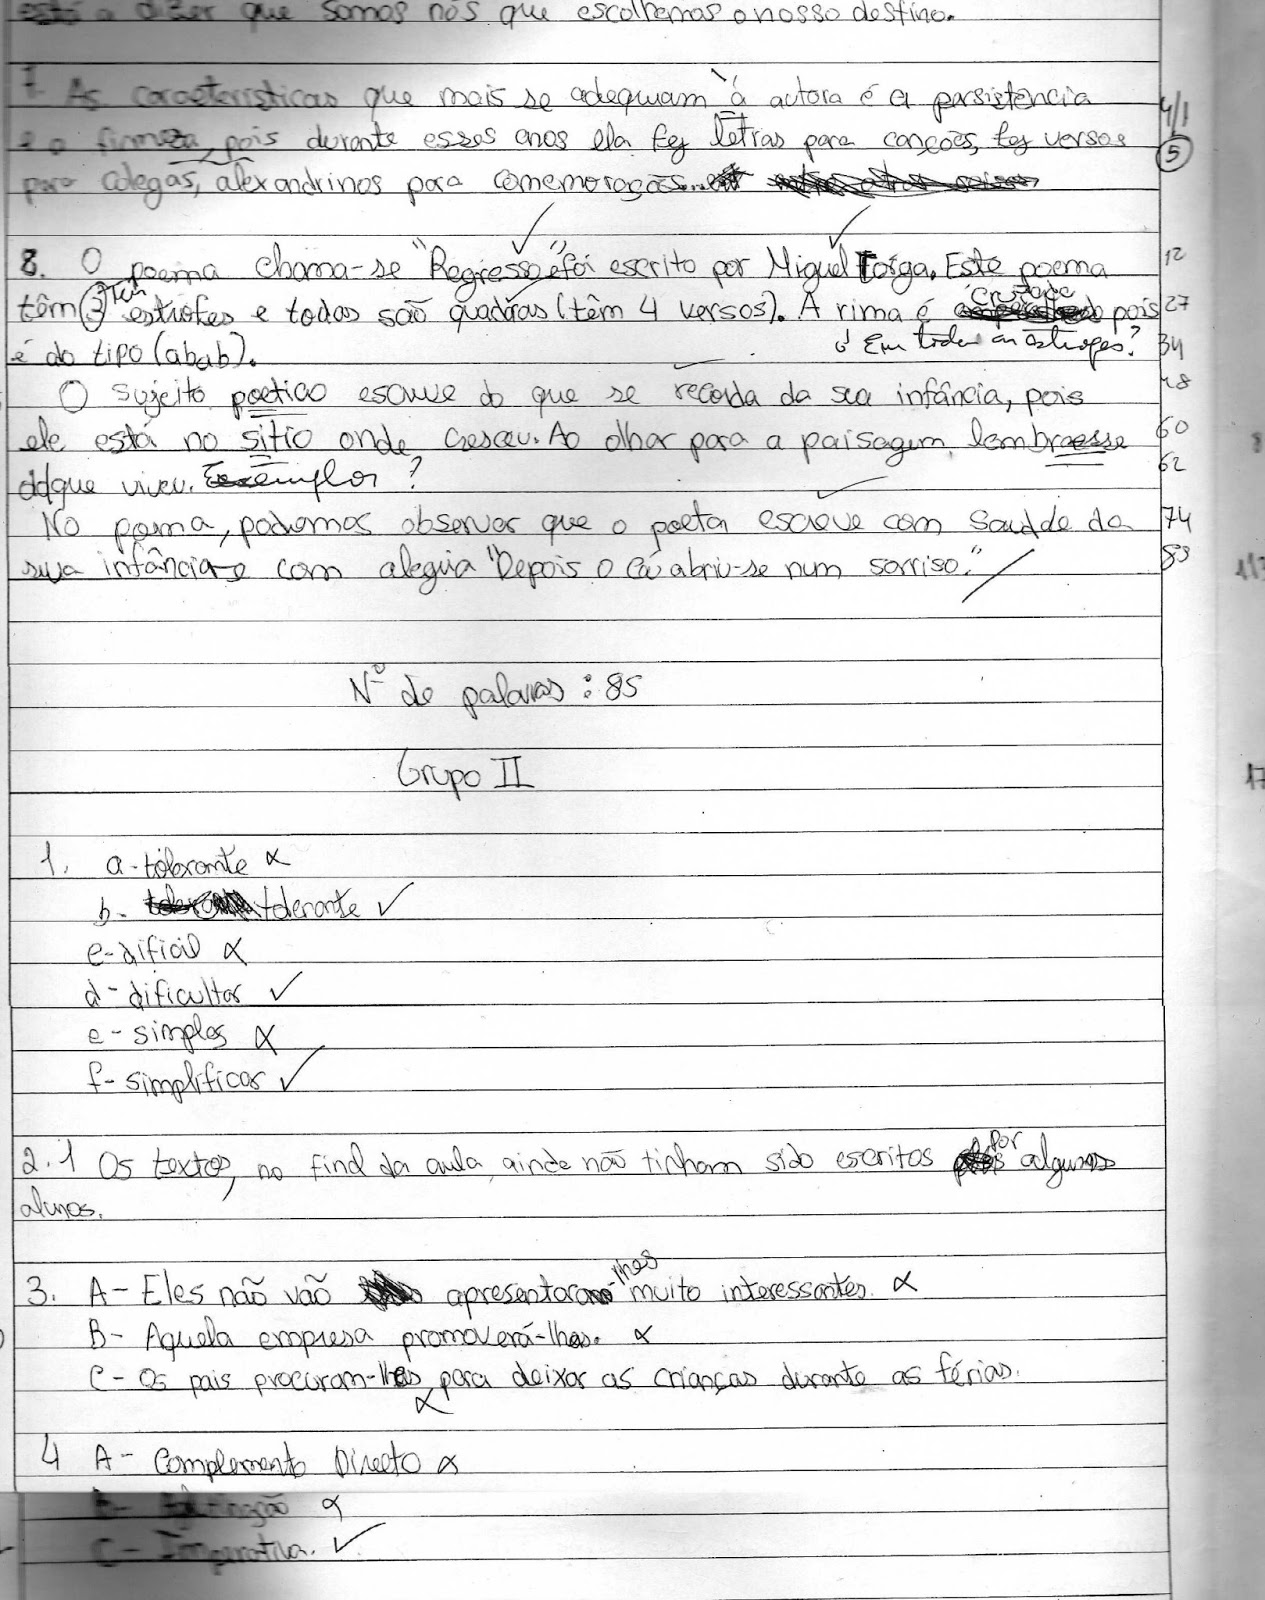 a dizer que somos nós que escolhemos o nosso destino.
7. As caracteristicas que mais se adequam à autora é a persistência 4/1
e a firmeza, pois durante esses anos ela fez letras para canções, fez versos 5
para colegas, alexandrinos para comemorações...
8. O poema chama-se "Regresso" e foi escrito por Miguel Torga. Este poema 12
têm tem 3 estrofes e todas são quadras (têm 4 versos). A rima é cruzada pois 27
é do tipo (abab). Em todas as estrofes? 34
O sujeito poetico escreve do que se recorda da sua infância, pois 48
ele está no sitio onde cresceu. Ao olhar para a paisagem, lembra-se 60
do que viveu. Exemplos? 62
No poema, podemos observar que o poeta escreve com saudde da 74
sua infância e com alegria "Depois o céu abriu-se num sorriso." 85
Nº de palavras: 85
Grupo II
1. a- tolerante
b- tolerante
c- dificil
d- dificultar
e- simples
f- simplificar
2.1 Os textos, no final da aula, ainda não tinham sido escritos por alguns
alunos.
3. A- Eles não vão apresentar-lhes muito interessantes.
B- Aquela empresa promoverá-lhes.
C- Os pais procuram-lhes para deixar as crianças durante as férias.
4 A- Complemento Directo
B-
C- Imperativa.